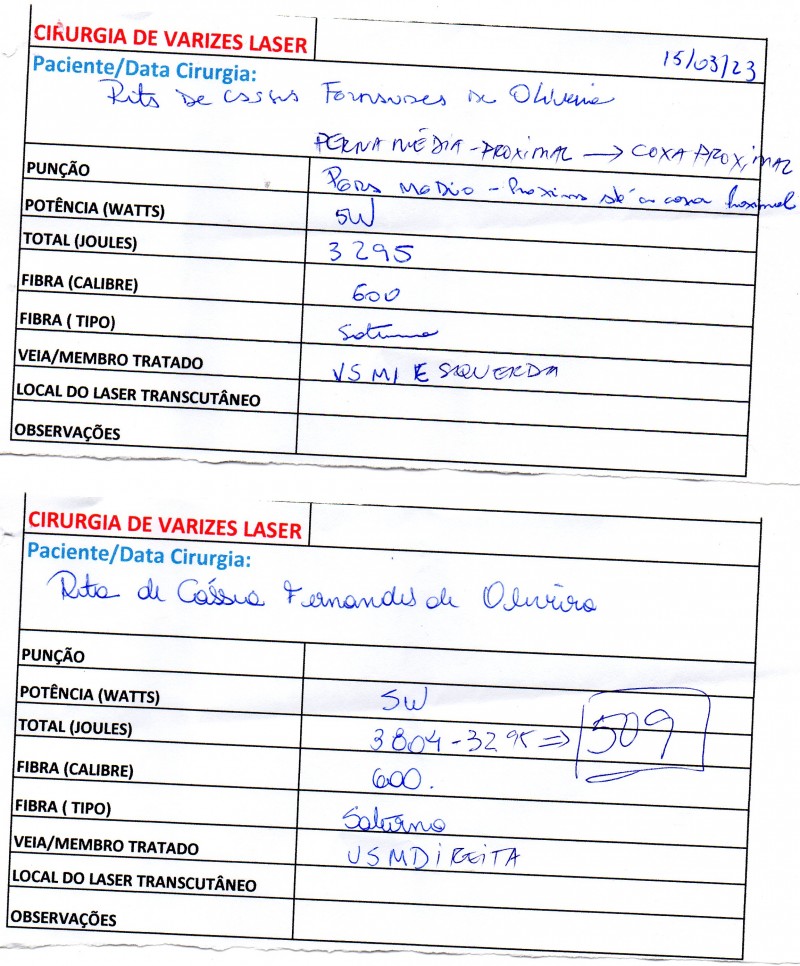 CIRURGIA DE VARIZES LASER
15/03/23
Paciente/Data Cirurgia:
Rita de Cassia Fernandes de Oliveira
PERNA MÉDIA - PROXIMAL → COXA PROXIMAL
PUNÇÃO
Médio - até a coxa Proximal
POTÊNCIA (WATTS) 5W
TOTAL (JOULES) 3295
FIBRA (CALIBRE) 600
FIBRA ( TIPO) Saturno
VEIA/MEMBRO TRATADO VSM ESQUERDA
LOCAL DO LASER TRANSCUTÂNEO
OBSERVAÇÕES
CIRURGIA DE VARIZES LASER
Paciente/Data Cirurgia:
Rita de Cássia Fernandes de Oliveira
PUNÇÃO
POTÊNCIA (WATTS) 5W
TOTAL (JOULES) 3804 - 3295 ⇒ 509
FIBRA (CALIBRE) 600.
FIBRA ( TIPO) Saturno
VEIA/MEMBRO TRATADO VSM DIREITA
LOCAL DO LASER TRANSCUTÂNEO
OBSERVAÇÕES